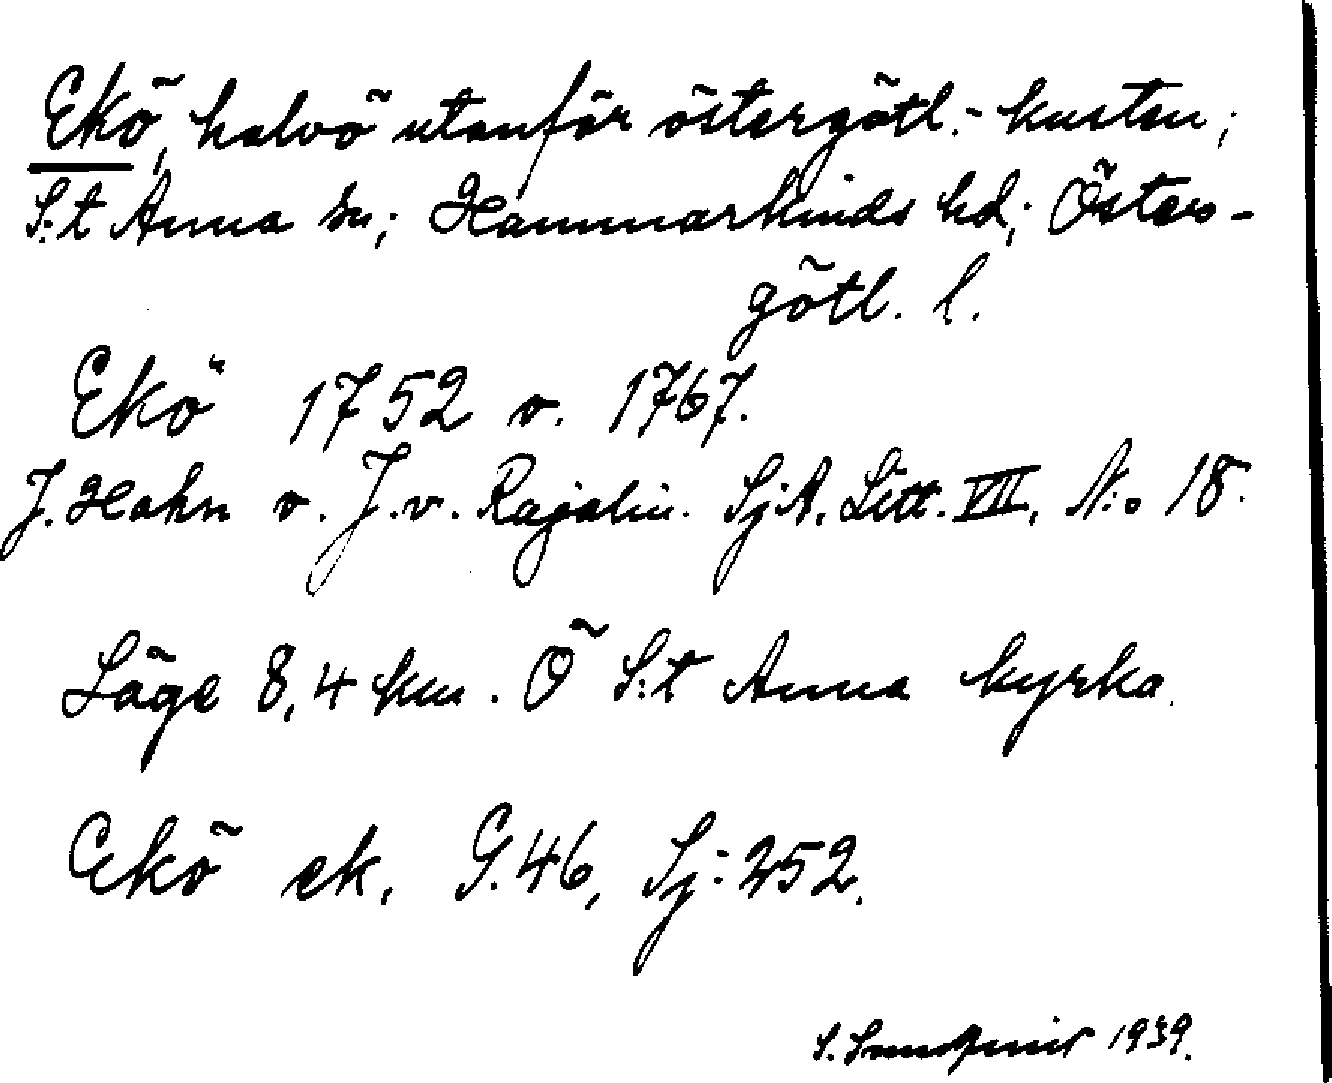 Ekö, halvö utanför östergötl.-kusten;
S:t Anna sn; Hammarkinds hd; Öster-
götl. l.
Ekö 1752 o. 1767.
J. Hahn o. J. v. Rajalin. SjA. Litt. VIII, N:o 18.
Läge 8,4 km. Ö S:t Anna kyrka.
Ekö ek. G. 46, Sj: 252.
S. 1939.